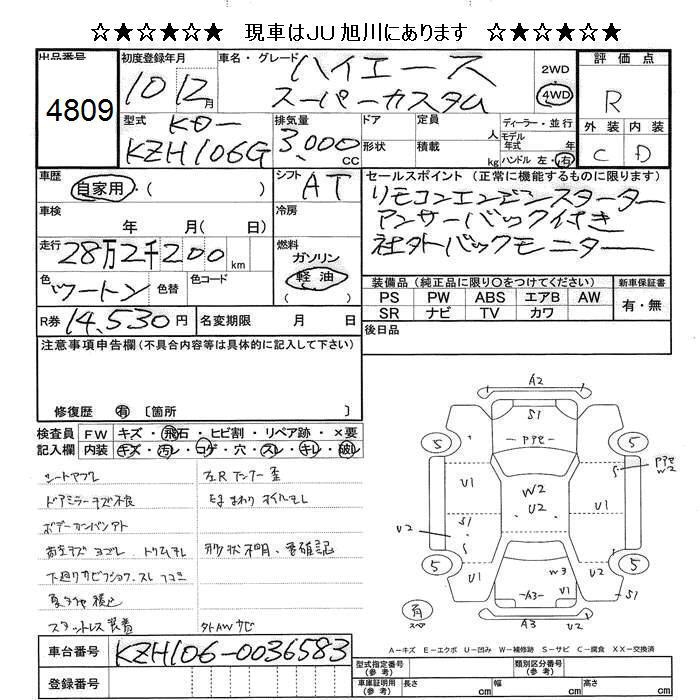 ☆★☆★☆★ 現車はJU旭川にあります ☆★☆★☆★
出品番号 4809
初度登録年月 10 12月
車名・グレード ハイエース
スーパーカスタム
2WD
4WD
評価点 R
外装 C 内装 D
型式 KD-
KZH106G
排気量 3,000 CC
ドア 形状
定員 人
積載 kg
ディーラー・並行
モデル年式 年
ハンドル 左・右
車歴 自家用・( )
シフト AT
セールスポイント (正常に機能するものに限ります)
リモコンエンジンスターター
アンサーバック付き
社外バックモニター
車検 年 月( 日)
冷房
走行 28万2千200 km
燃料 ガソリン
軽油
色 ツートン 色替 色コード
( )
装備品(純正品に限り〇をつけてください) 新車保証書
PS PW ABS エアB AW 有・無
SR ナビ TV カワ
R券 14,530円 名変期限 月 日
後日品
注意事項申告欄(不具合内容等は具体的に記入して下さい)
修復歴 有 〔箇所 〕
検査員 FW キズ・飛石・ヒビ割・リペア跡・×要
記入欄 内装 キズ・汚レ・コゲ・穴・スレ・キレ・破レ
シートヤブレ
ドアミラーキズ不良
外AWサビ
車台番号 KZH106-0036583
登録番号
A2
S1
5 5
U1 U1
W2
U2
U2
S1
S
5 5
U1 W3 U2
A3
A3 U2
S1
A-キズ E-エクボ U-凹み W-補修跡 S-サビ C-腐食 XX-交換済
型式指定番号(参考) 類別区分番号(参考)
車庫証明用(参考) 長さ cm 幅 cm 高さ cm